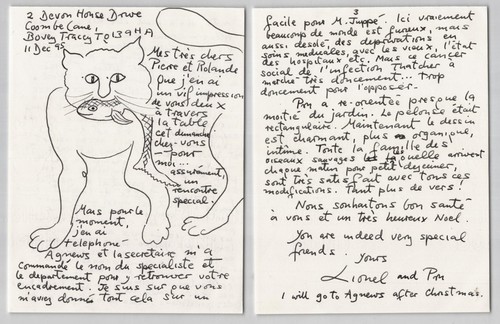 2 Devon House Drive
Coombe Lane,
Bovey Tracey TQ13 9HA
11 Dec 95
Mes très chers
Pierre et Rolande
que j'en ai
un vif impression
de vous deux
à travers
la table
cet dimanche
chez-vous
pour
moi...
assurément,
un
rencontre
special.
Mais pour le
moment,
j'en ai
telephoné
Agnews et la secretaire m'a
commandé le nom du specialiste et
le departement pour y retrouver votre
encadrement. Je suis sur que vous
m'aviez donné tout cela sur un
3
facile pour M. Juppé. Ici vraiement
beaucoup de monde est furieux, mais
aussi désolé des deprivations en
soins medicales, avec les vieux, l'état
des hospitaux etc. Mais ce cancer
social de l'infection Thatcher a
marché très doucement... trop
doucement pour l'opposer.
Pon a re-orientée presque la
moitié du jardin. Le pelouse était
rectangulaire. Maintenant le dessin
est charmant, plus organique,
intime. Toute la famille des
oiseaux sauvages laquelle arrivent
chaque matin pour petit dejeuner,
sont très satisfait avec tous ces
modifications. Tant plus de vers!
Nous souhaitons bon santé
à vous et un très heureux Noel.
You are indeed very special
friends.
Yours
Lionel and Pon
I will go to Agnews after Christmas.